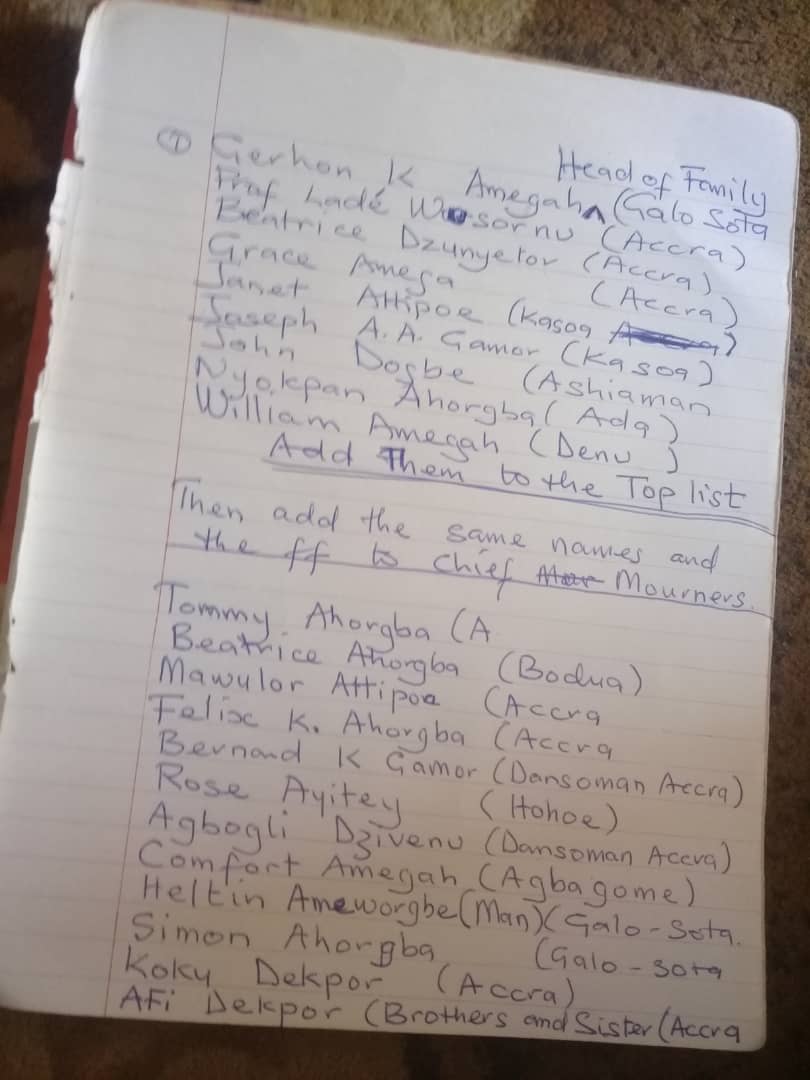 ① Gerhon K Amegah ^ Head of Family (Galo Sota
Prof Ladé Wosornu (Accra)
Beatrice Dzunyetor (Accra)
Grace Amega (Accra)
Janet Attipoe (Kasoa)
Joseph A.A. Gamor (Kasoa)
John Dosbe (Ashiaman
Nyokpan Ahorgba (Ada)
William Amegah (Denu)
Add Them to the Top list
Then add the same names and
the ff to Chief Mourners.
Tommy Ahorgba (A
Beatrice Ahorgba (Bodua)
Mawulor Attipoe (Accra
Felix K. Ahorgba (Accra
Bernard K Gamor (Dansoman Accra)
Rose Ayitey (Hohoe)
Agbogli Dzivenu (Dansoman Accra)
Comfort Amegah (Agbagome)
Heltin Ameworgbe (Man) (Galo-Sota.
Simon Ahorgba (Galo-Sota
Koky Dekpor (Accra)
AFi Dekpor (Brothers and Sister (Accra